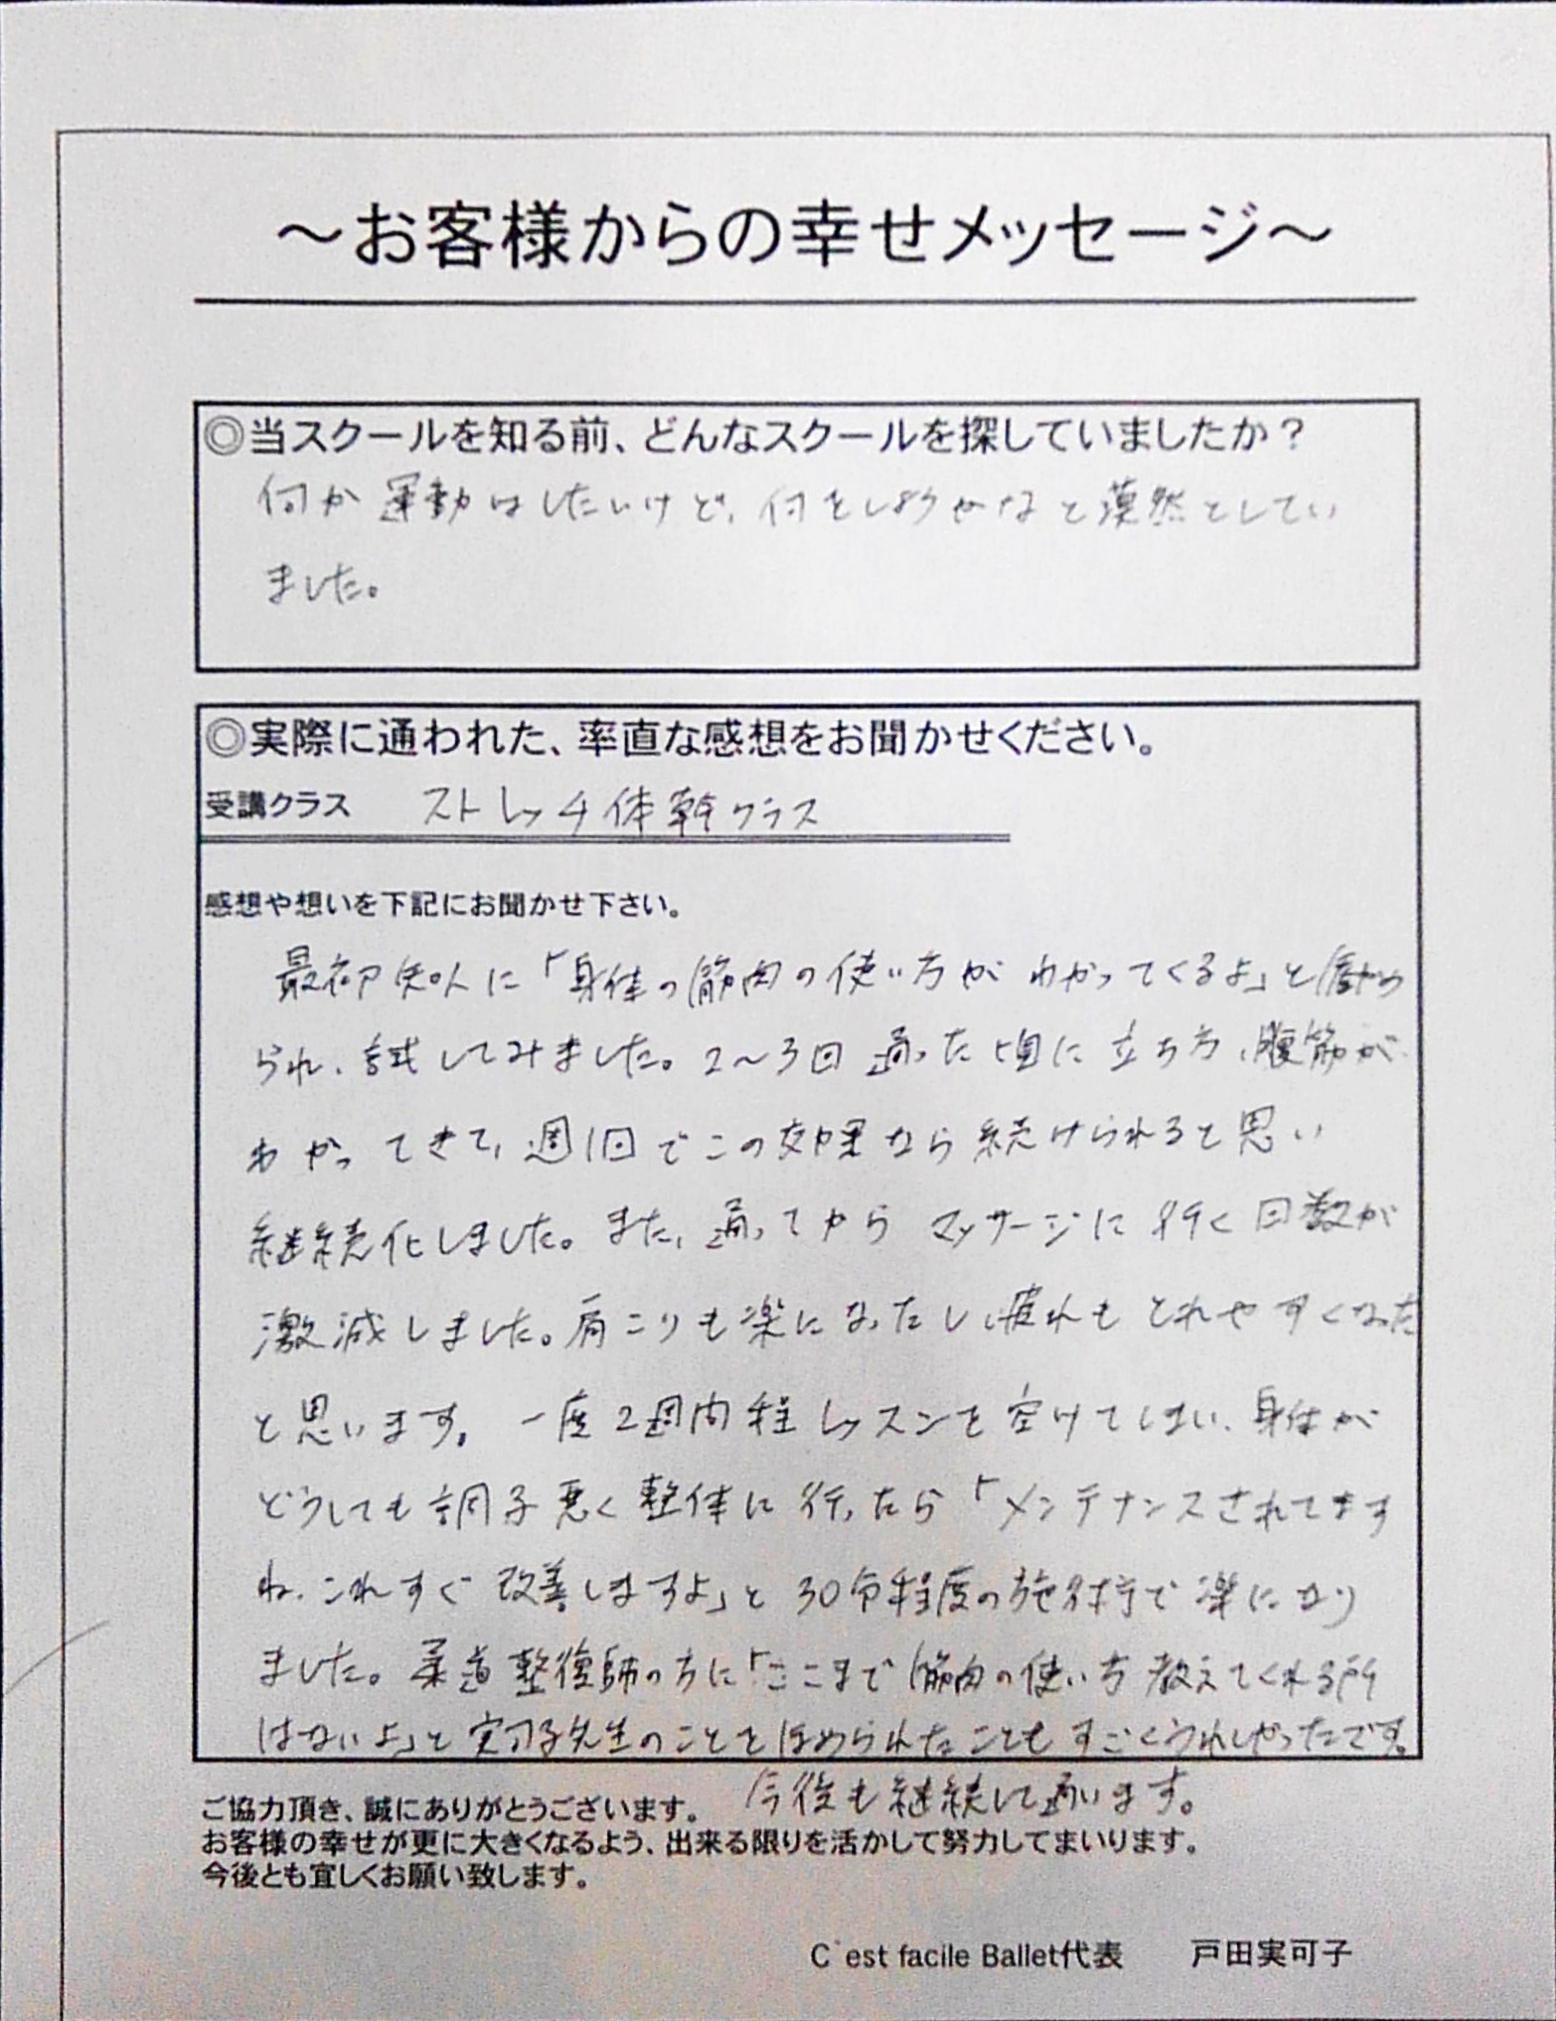 ～お客様からの幸せメッセージ～
◎当スクールを知る前、どんなスクールを探していましたか？
何か運動はしたいけど、何をしようかなと漠然としてい
ました。
◎実際に通われた、率直な感想をお聞かせください。
受講クラス ストレッチ体幹クラス
感想や想いを下記にお聞かせ下さい。
最初知人に「身体の筋肉の使い方がわかってくるよ」と薦め
られ、試してみました。2～3回通った頃に立ち方、腹筋が
わかってきて、週1回でこの効果なら続けられると思い
継続化しました。また、通ってからマッサージに行く回数が
激減しました。肩こりも楽になったし、疲れもとれやすくなった
と思います。一度2週間程レッスンを空けてしまい、身体が
どうしても調子悪く整体に行ったら「メンテナンスされてます
ね、これすぐ改善しますよ」と30分程度の施術で楽になり
ました。柔道整復師の方に「ここまで筋肉の使い方教えてくれる所
はないよ」と実可子先生のことをほめられたこともすごくうれしかったです。
今後も継続して通います。
ご協力頂き、誠にありがとうございます。
お客様の幸せが更に大きくなるよう、出来る限りを活かして努力してまいります。
今後とも宜しくお願い致します。
C`est facile Ballet代表 戸田実可子